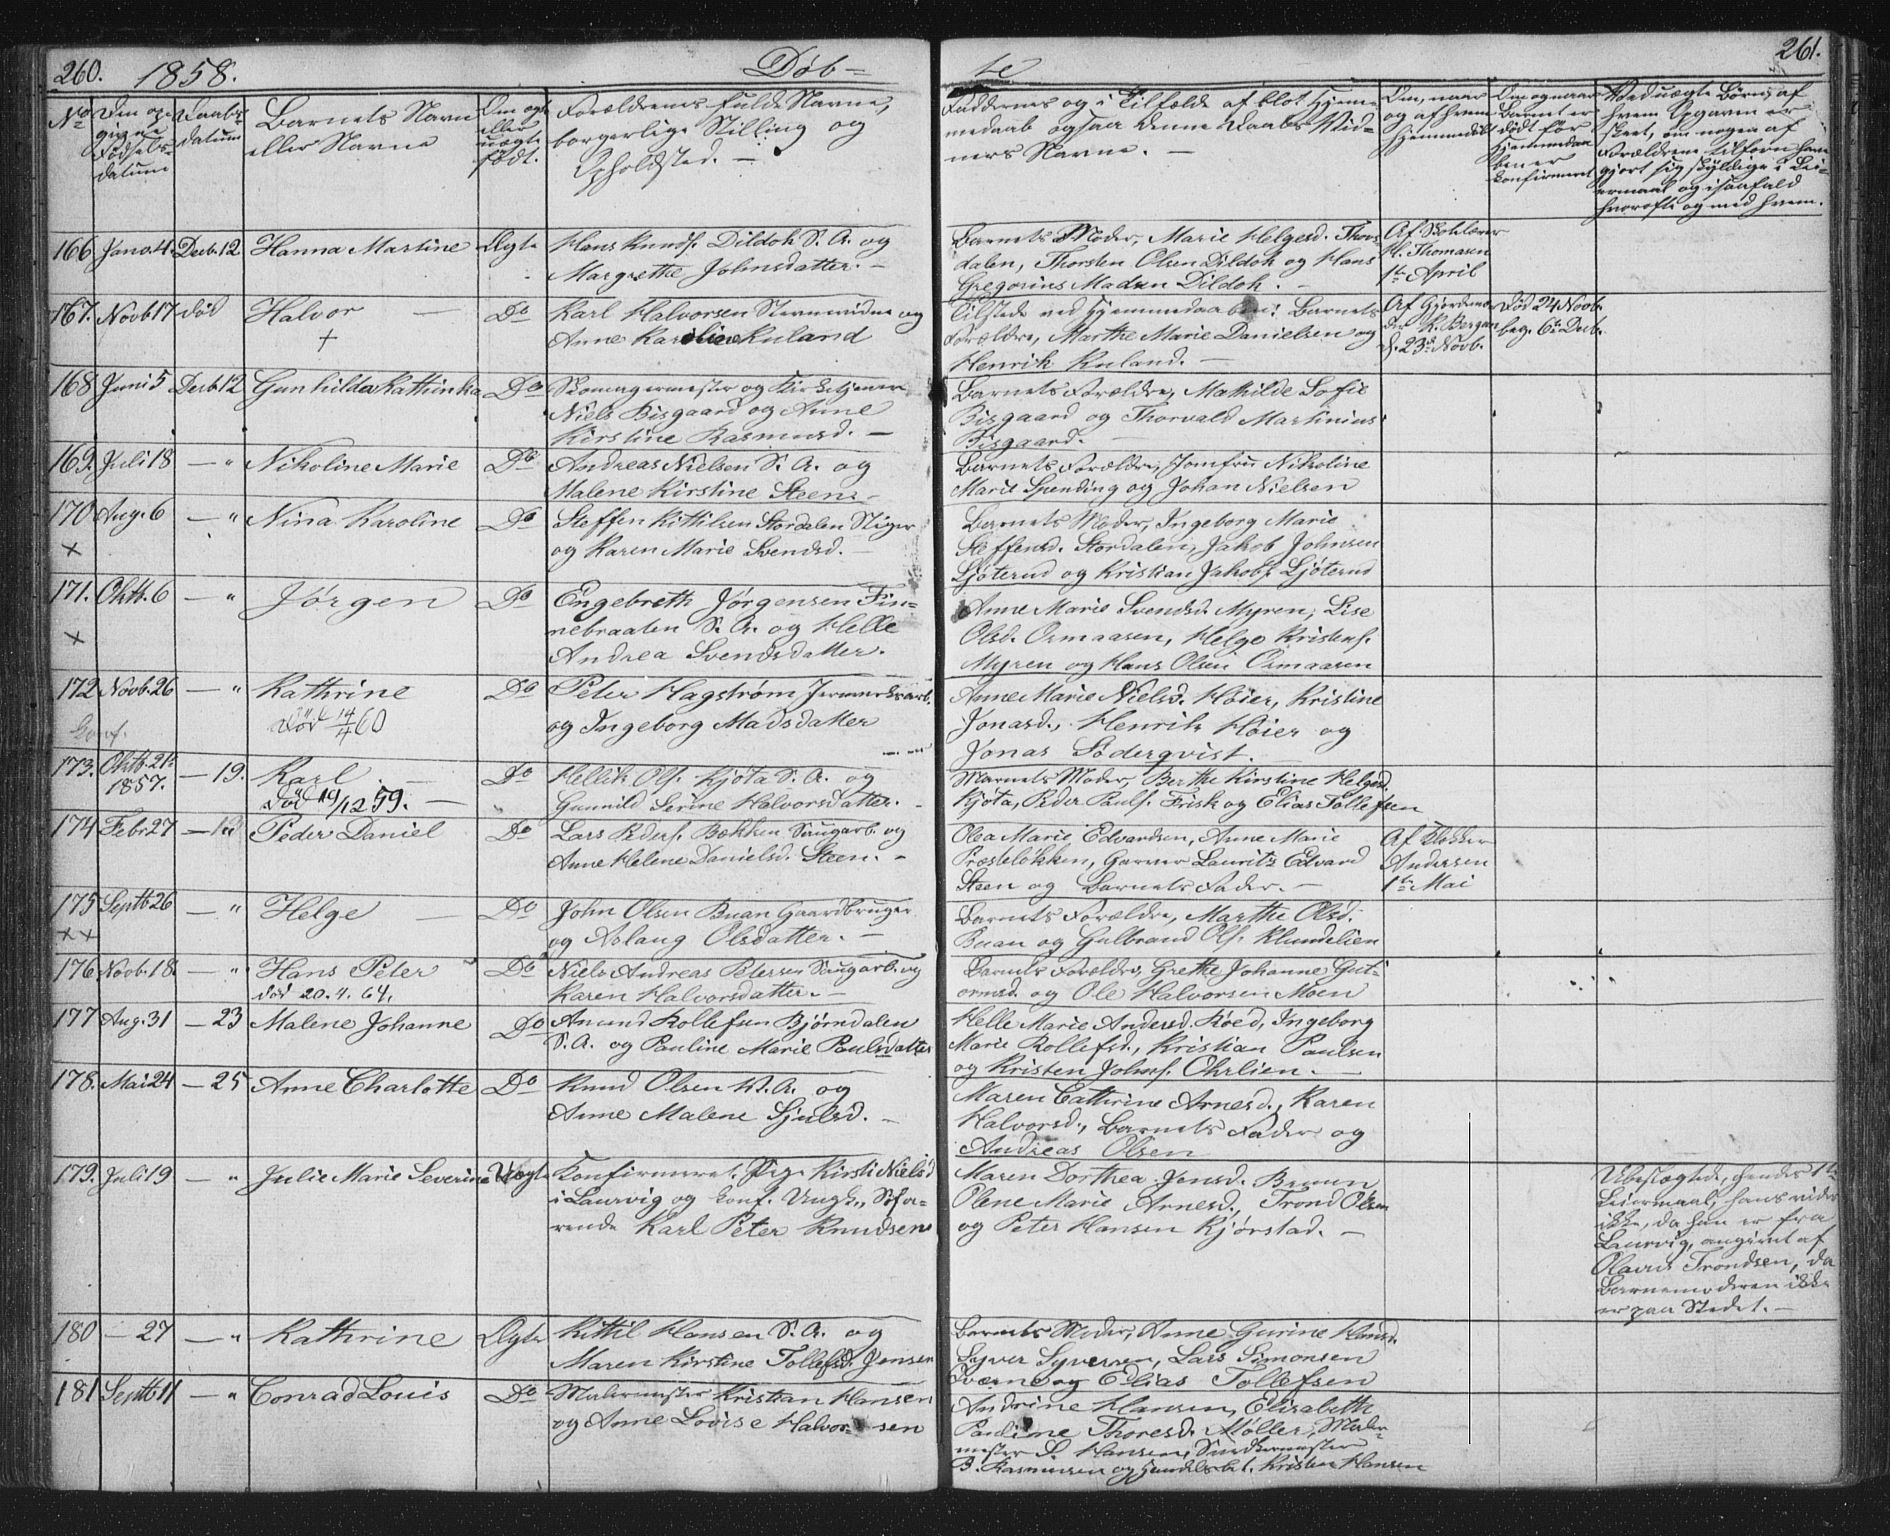 260. 1858. Døb-
No Den op- Daabs- Barnets Navn Om ægte Forældrenes fulde Navne,
givne datum eller Navne eller borgerlige Stilling og
Fødsels- uægte Opholdsted. —
datum født.
166 Janr.4. Decb.12 Hanna Martine Ægte Hans Knuds. Dildok S. A. og
Margrethe Johnsdatter. —
167. Novb.17 død Halvor — Do Karl Halvorsen og
+ Anne Karoline Ruland
168 Juni 5 Decb.12 Gunhilda Kathinka Do Skomagermester og Kirketjener
Niels Bisgaard og Anne
Kirstine Rasmusd. —
169. Juli 18 — " Nikoline Marie Do Andreas Nielsen S. A. og
Malene Kirstine Steen. —
170 Aug. 6 — " Nina Karoline Do Steffen Kittilsen Stordalen Stiger
x og Karen Marie Svendsd. —
171. Oktb. 6 — " Jørgen Do Engebreth Jørgensen Fin-
nebraaten S. A. og Helle
x Andrea Svendsdatter.
172 Novb. 26 — " Kathrine Do Peter Hagstrøm Jernverksarb.
Død 14/4 60 og Ingeborg Madsdatter
173. Oktb. 21. — 19. Karl — Do Hellik Ols. Kjøta S. A. og
1857. død 19/12 59. — Gunnild Serine Halvorsdatter. -
174 Febr. 27 — Peder Daniel Do Lars Peders. Bækken Saugarb. og
Anne Helene Danielsd. Steen. -
175 Septb 26 — " Helge — Do John Olsen Buan Gaardbruger
xx og Aslaug Olsdatter. —
176 Novb. 18. — " Hans Peter Do Niels Andreas Petersen Saugarb. og
død 20.4.64. Karen Halvorsdatter. —
177 Aug. 31 — 23 Malene Johanne Do Amund Rollefsen Bjørndalen
S. A. og Pauline Marie Paulsdatter
178. Mai 24 — 25 Anne Charlotte Do Knud Olsen V. A. og
Anne Malene Sjulsd. —
179. Juli 9 — " Julie Marie Severine Uægte Konfirmeret Pige Kirsti Nielsd
i Laurvig og konf. Ungk., Søfa-
rende Karl Peter Knudsen
180 — 27 — " Kathrine Ægte Kittil Hansen S. A. og
Maren Kirstine Tollefsd. Jensen
181 Septb 11 — " Conrad Louis Do Malermester Kristian Hansen
og Anne Lovise Halvorsen
te 261.
Faddernes og i Tilfælde af blot Hjem- Om, naar Om og naar Ved uægte Børn; af
medaab ogsaa denne Daabs Vid- og af hvem Barnet er hvem Opgaven er
ners Navne. — Hjemmedøbt død før skeet, om nogen af
Hjemmedaa- Forældrene tilforn have
ben er gjort sig skyldige i Lei-
konfirmeret ermaal og i saafald
hvorofte og med hvem.
Barnets Moder, Marie Helgesd. Thors- Af Skolelærer
dalen, Thorsten Olsen Dildok og Hans H. Thomasen
Gregorius Madsen Dildok. — 1te April
Tilstede ved Hjemmedaaben: Barnets Af Gjordemo- Død 24 Novb.
Forældre, Marthe Marie Danielsen og der K. Bergan beg. 6te Decb.
Henrik Ruland. — d. 23de Novb.
Barnets Forældre, Mathilde Sofie
Bisgaard og Thorvald Martinius
Bisgaard. —
Barnets Forældre, Jomfru Nikoline
Marie Spending og Johan Nielsen
Barnets Moder, Ingeborg Marie
Steffensd. Stordalen, Jakob Johnsen
Ljøterud og Kristian Jakobs. Ljøterud
Anne Marie Svendsd. Myren, Lise
Olsd. Osmaasen, Helge Kristens.
Myren og Hans Olsen Osmaasen
Anne Marie Nielsd. Høier, Kristine
Jonasd., Henrik Høier og
Jonas Söderqvist.
Barnets Moder, Berthe Kirstine Helgesd.
Kjøta, Peder Pauls. Frisk og Elias Tollefsen
Olea Marie Edvardsen, Anne Marie Af Klokker
Præsteløkken, Garver Lauritz Edvard Andersen
Steen og Barnets Fader. — 1te Mai
Barnets Forældre, Marthe Olsd.
Buan og Gulbrand Ols. Klundelien
Barnets Forældre, Grethe Johanne Gut-
ormsd. og Ole Halvorsen Moen
Helle Marie Andersd. Røed, Ingeborg
Marie Rollefsd., Kristian Paulsen
og Kristen Johns. Ohrlien. —
Maren Cathrine Arnesd., Karen
Halvorsd., Barnets Fader og
Andreas Olsen
Maren Dorthea Jensd. Bruun Ubeslægtede, hendes 1te
Olene Marie Arnesd., Trond Olsen Leiermaal, hans vides
og Peter Hansen Kjørstad. — ikke, da han er fra
Laurvig, angivet af
Olavus Trondsen, da
Barnemoderen ikke
er paa Stedet. —
Barnets Moder, Anne Gurine Hansd.
Syver Syversen, Lars Simonsen
Tværne og Elias Tollefsen
Andrine Hansen, Elisabeth
Pauline Thoresd. Møller, Maler-
mester S. Hansen, Snedkermester
B. Rasmussen og Handelsbet. Kristen Hansen